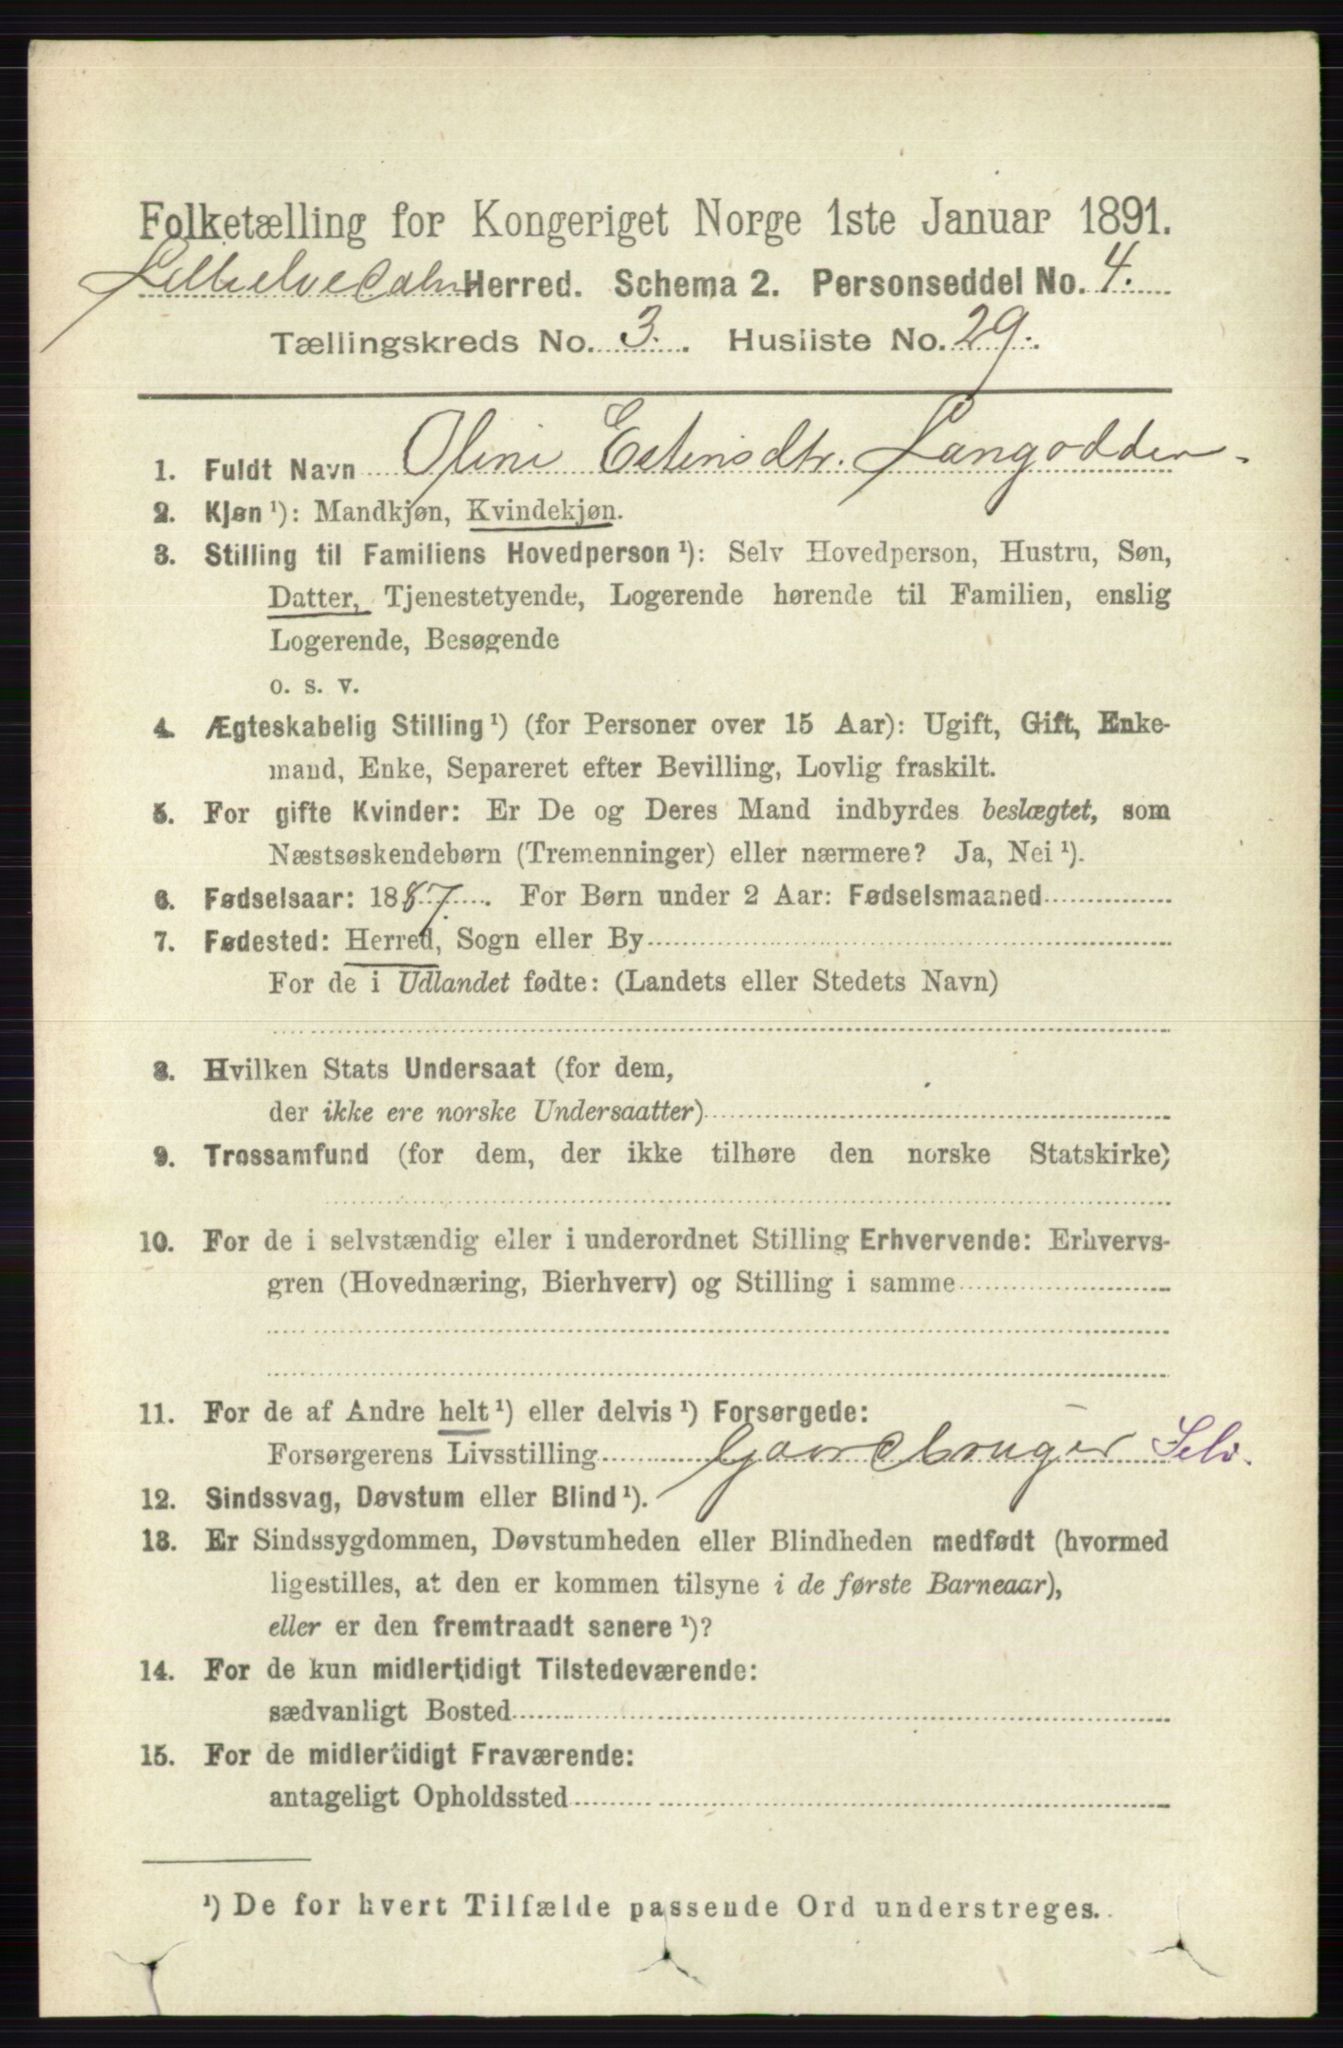 Folketælling for Kongeriget Norge 1ste Januar 1891.
Lilleelvedalen Herred. Schema 2. Personseddel No. 4.
Tællingskreds No. 3. Husliste No. 29.
1. Fuldt Navn Oline Estensdtr. Langodden
2. Kjøn ¹): Mandkjøn, Kvindekjøn.
3. Stilling til Familiens Hovedperson ¹): Selv Hovedperson, Hustru, Søn,
Datter, Tjenestetyende, Logerende hørende til Familien, enslig
Logerende, Besøgende
o. s. v.
4. Ægteskabelig Stilling ¹) (for Personer over 15 Aar): Ugift, Gift, Enke-
mand, Enke, Separeret efter Bevilling, Lovlig fraskilt.
5. For gifte Kvinder: Er De og Deres Mand indbyrdes beslægtet, som
Næstsøskendebørn (Tremenninger) eller nærmere? Ja, Nei ¹).
6. Fødselsaar: 1887. For Børn under 2 Aar: Fødselsmaaned
7. Fødested: Herred, Sogn eller By
For de i Udlandet fødte: (Landets eller Stedets Navn)
8. Hvilken Stats Undersaat (for dem,
der ikke ere norske Undersaatter)
9. Trossamfund (for dem, der ikke tilhøre den norske Statskirke)
10. For de i selvstændig eller i underordnet Stilling Erhvervende: Erhvervs-
gren (Hovednæring, Bierhverv) og Stilling i samme
11. For de af Andre helt ¹) eller delvis ¹) Forsørgede:
Forsørgerens Livsstilling Gaardbruger Selv.
12. Sindssvag, Døvstum eller Blind ¹).
13. Er Sindssygdommen, Døvstumheden eller Blindheden medfødt (hvormed
ligestilles, at den er kommen tilsyne i de første Barneaar),
eller er den fremtraadt senere ¹)?
14. For de kun midlertidigt Tilstedeværende:
sædvanligt Bosted
15. For de midlertidigt Fraværende:
antageligt Opholdssted
¹) De for hvert Tilfælde passende Ord understreges.